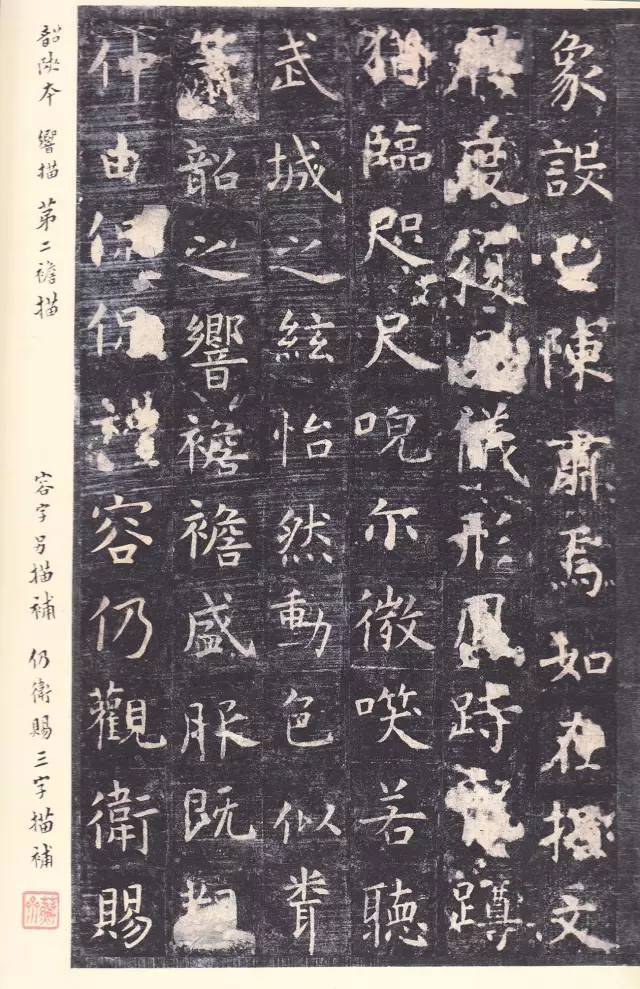 象設已陳肅焉如在握文
度復儀形跱蹲
猶臨咫尺哯尔微咲若聽
武城之絃怡然動色似
簫韶之響襜襜盛服既
仲由侃侃禮容仍觀衛賜
韶陝本 響描 第二襜描 容字另描補 仍衛賜三字描補